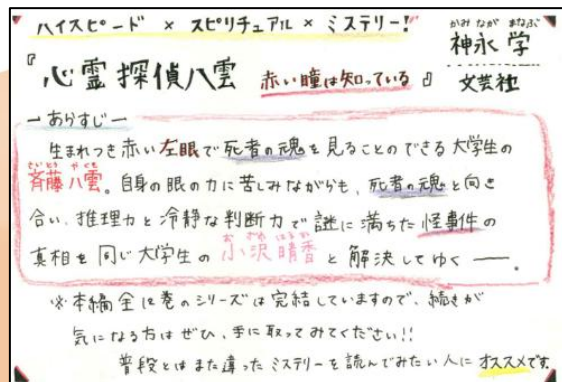 ハイスピード × スピリチュアル × ミステリー!
かみ なが まなぶ
神永 学
『心霊探偵八雲 赤い瞳は知っている』 文芸社
ーあらすじー
生まれつき赤い左眼で死者の魂を見ることのできる大学生の
さいとう やくも
斉藤八雲。自身の眼の力に苦しみながらも、死者の魂と向き
合い、推理力と冷静な判断力で謎に満ちた怪事件の
お ざわ はるか
真相を同じ大学生の 小沢晴香 と解決してゆく ──。
※本編全12巻のシリーズは完結していますので、続きが
気になる方はぜひ、手に取ってみてください!!
普段とはまた違ったミステリーを読んでみたい人にオススメです。